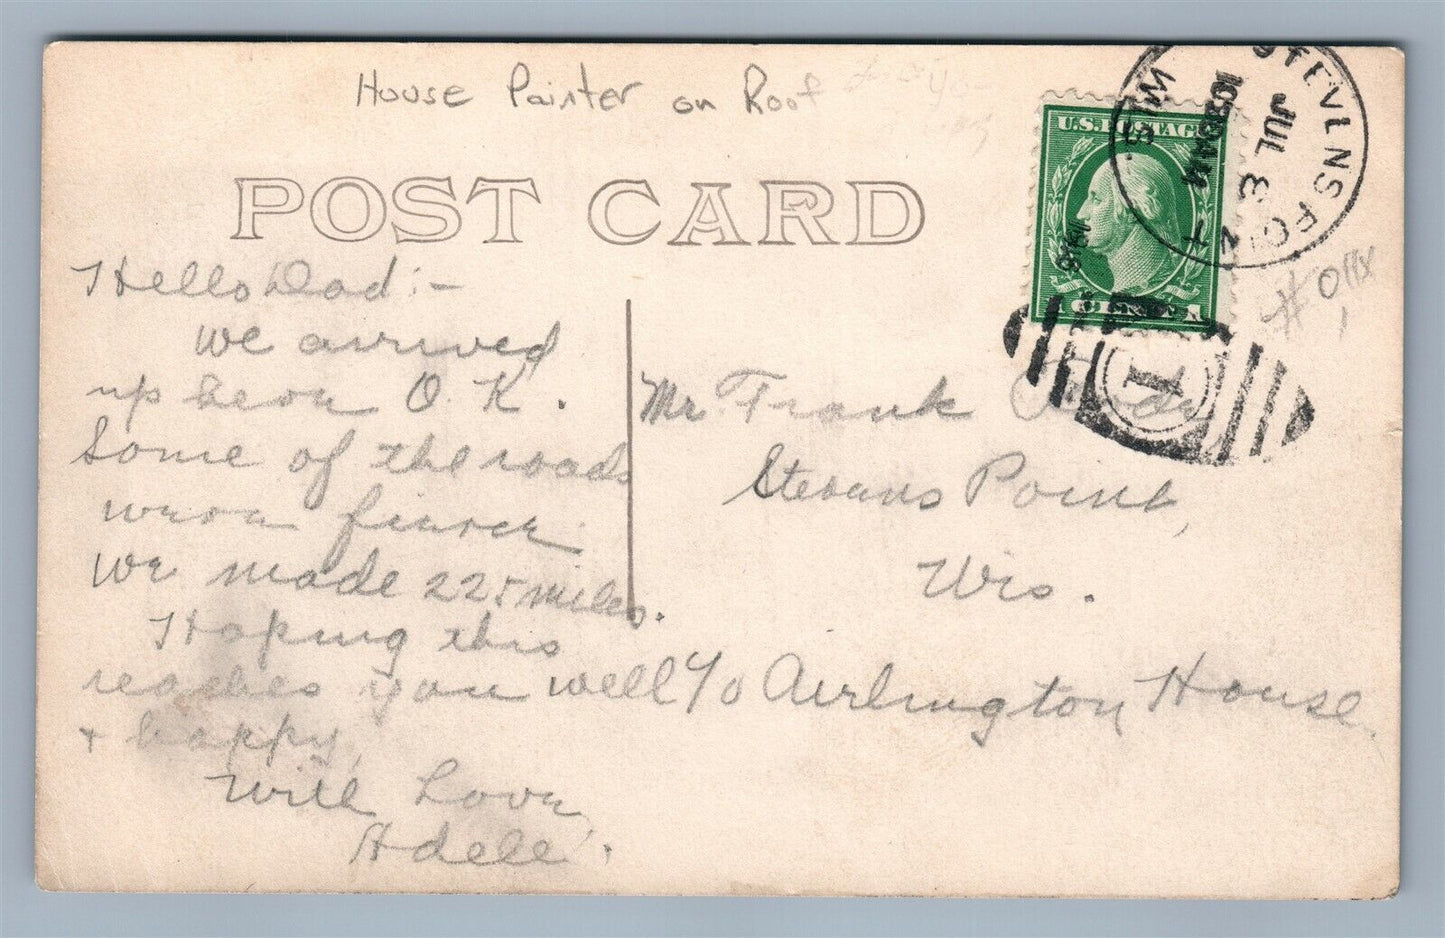 House Painter on Roof
POST CARD
U.S. POSTAGE
1 CENT 1
STEVENS POINT
WIS.
JUL 8
10 30 AM
1918
1
Hello Dad :-
We arrived
up here O. K.
Some of the roads
were fierce
We made 225 miles.
Hoping this
reaches you well
+ happy,
With Love,
Adele.
Mr. Frank
Stevans Point,
Wis.
c/o Airlington House.